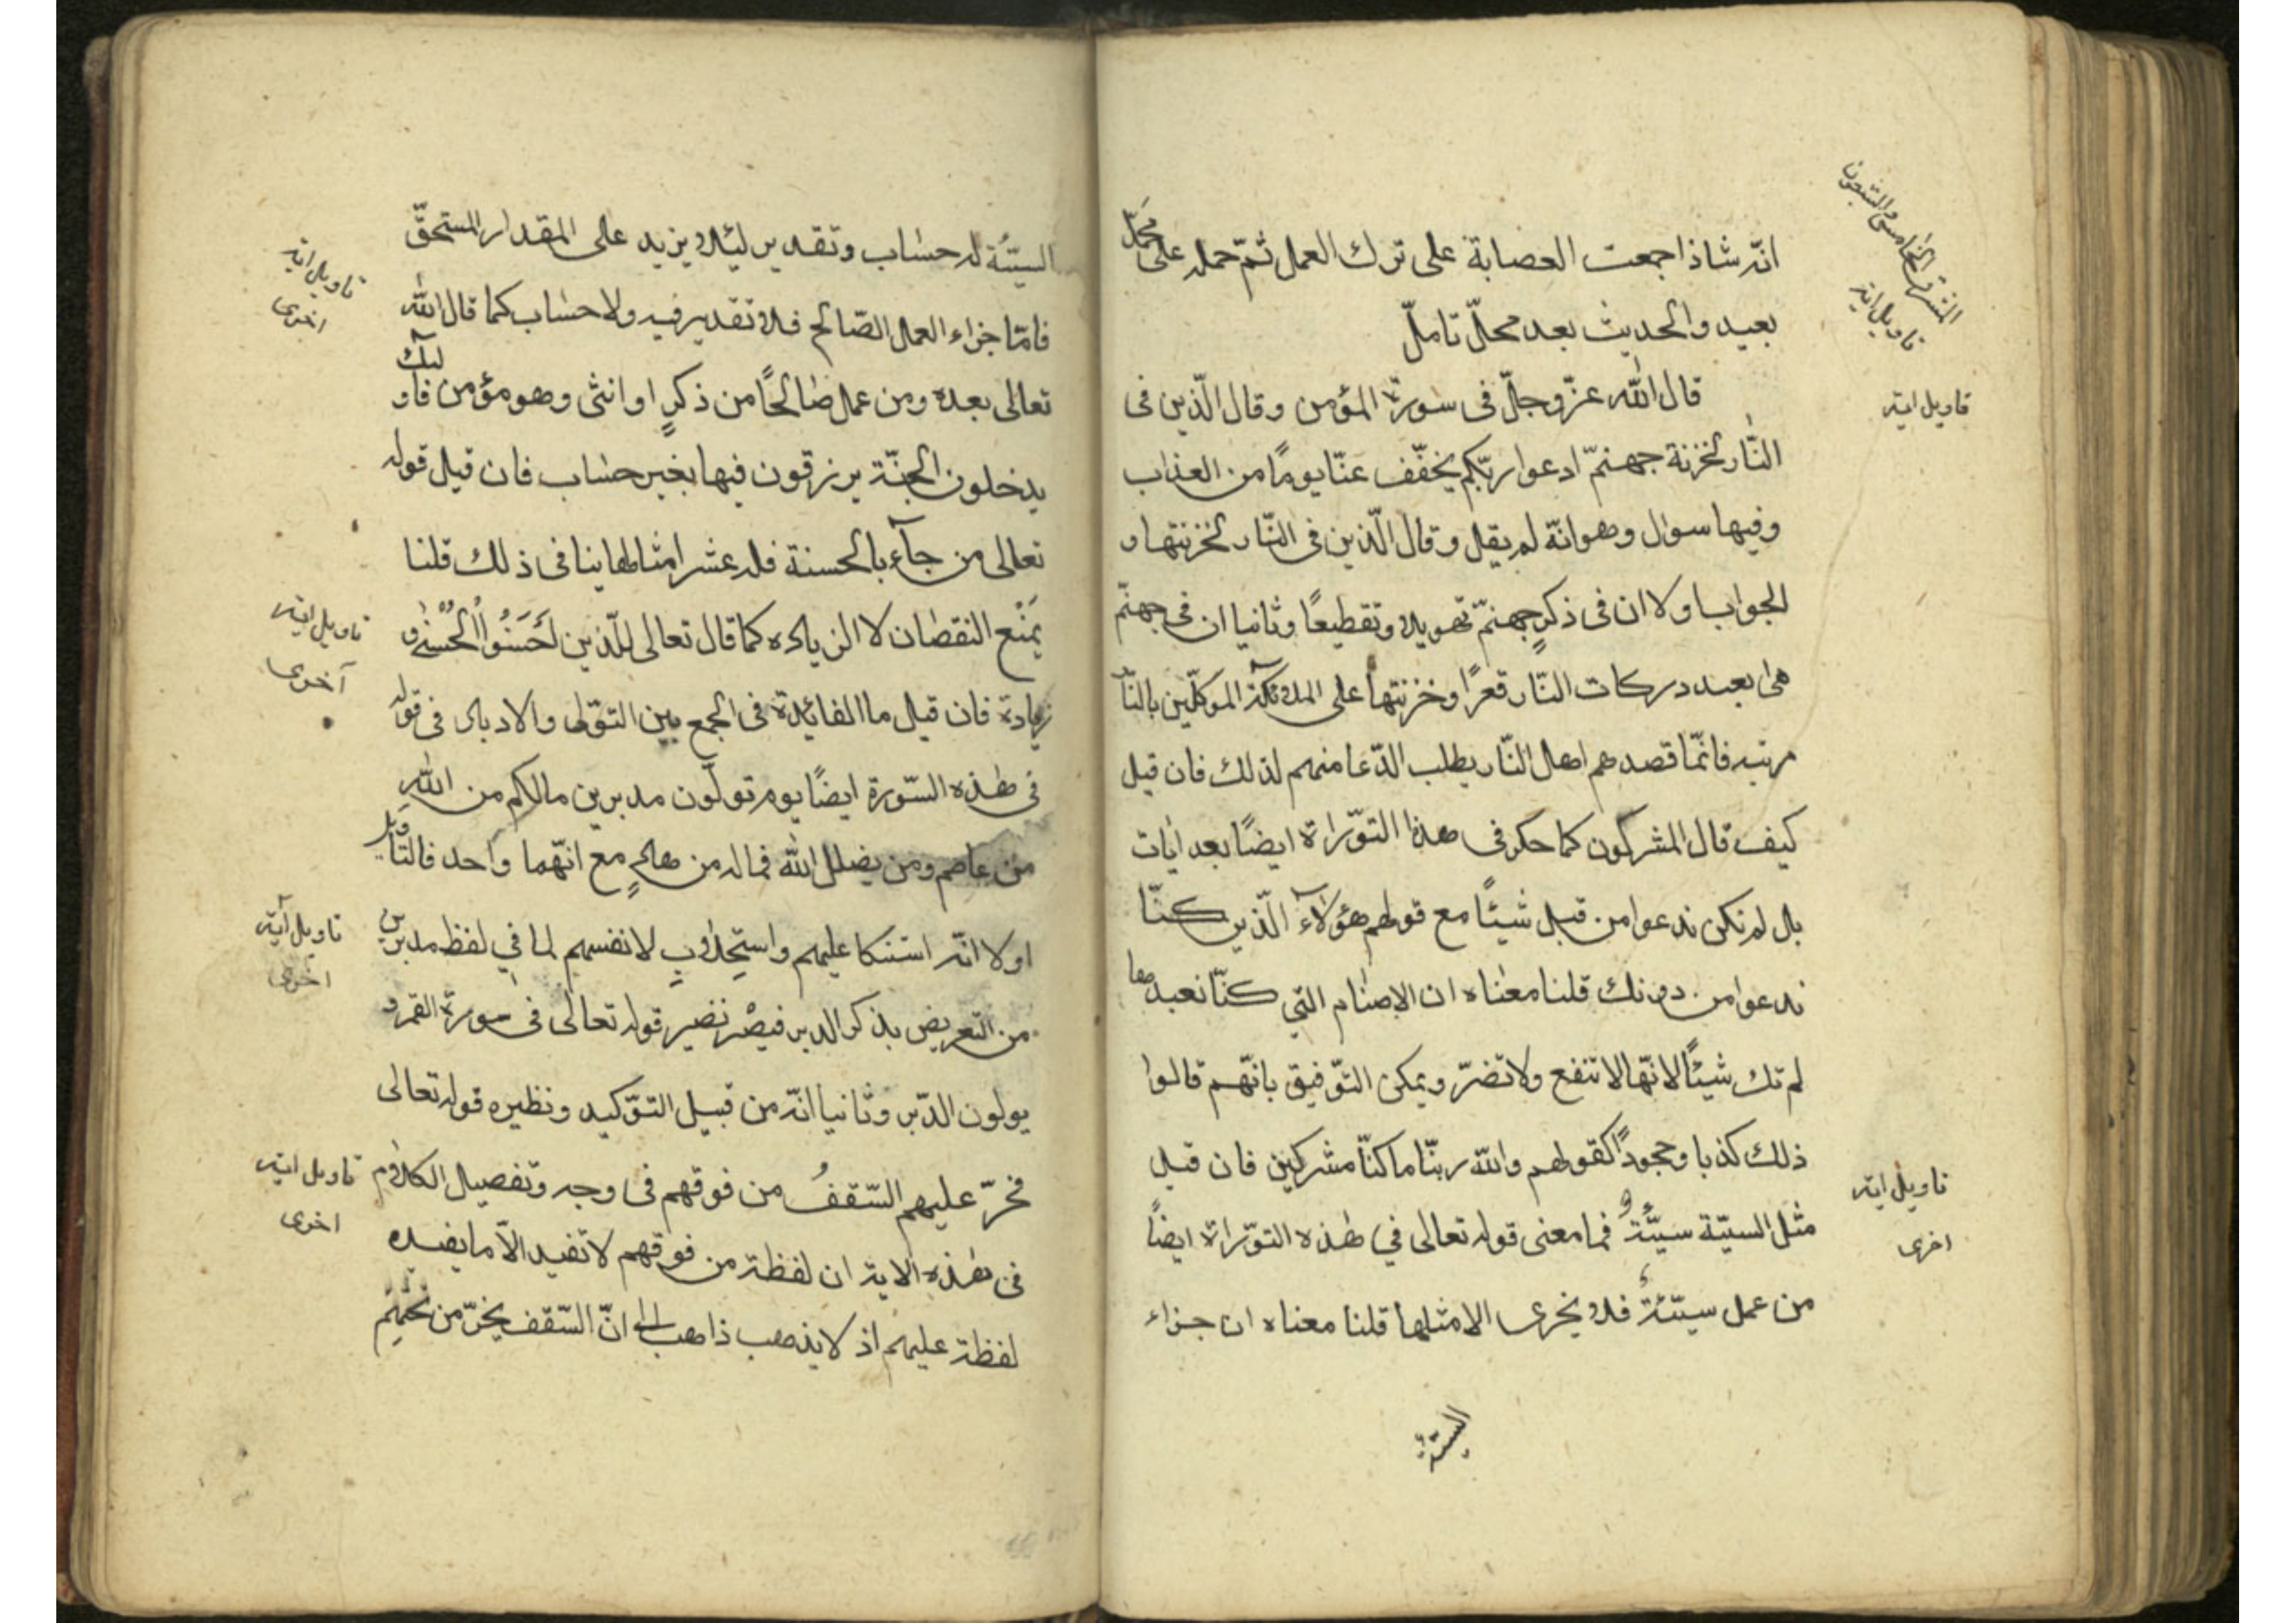 انّه شاذ اجمعت العصابة على ترك العمل ثمّ حمله على محمل
بعيد والحديث بعد محلّ تاملّ
قال اللّه عزّ وجلّ فى سورة المؤمن وقال الّذين فى
النّار لخزنة جهنمّ ادعوا ربّكم يخفّف عنّا يومًا من العذاب
وفيها سوال وهو انّه لم يقل وقال الّذين فى النّار لخزنتها و
الجواب اولا ان فى ذكر جهنمّ تهويلا وتقطيعًا وثانيا ان فى جهنمّ
هى بعيد دركات النّار قعرًا وخزنتها على الملائكة الموكلّين بالنّار
مرتبه فانمّا قصدهم اهل النّار بطلب الدّعا منهم لذلك فان قيل
كيف قال المشركون كما حكى فى هذا التوّراة ايضًا بعد ايات
بل لم نكن ندعوا من قبل شيئًا مع قولهم هؤلاء الّذين كنّا
ندعوا من دونك قلنا معناه ان الاصنام التي كنّا نعبدها
لم تك شيئًا لانهّا لا تنفع ولا تضرّ ويمكن التوّفيق بانهّم قالوا
ذلك كذبا وجحودًا كقولهم واللّه ربنّا ما كنّا مشركين فان قيل
مثل السيّة سيّئة فما معنى قوله تعالى في هذه التوّراة ايضًا
من عمل سيّئة فلا يخرى الا مثلها قلنا معناه ان جزاء
السيّئة
تاويل اية
تاويل اية
تاويل اية
اخرى
السيّئة له حساب وتقدير ليئلا يزيد على المقدار المستحقّ
فامّا جزاء العمل الصّالح فلا تقدير فيه ولا حساب كما قال اللّه
تعالى بعده ومن عمل صالحًا من ذكرٍ او انثى وهو مؤمن فاولئك
يدخلون الجنّة يرزقون فيها بغير حساب فان قيل قوله
تعالى من جآء بالحسنة فله عشر امثالها ينافى ذلك قلنا
يمنع النقصان لا الزياده كما قال تعالى للّذين احسنوا الحسنى و
زيادة فان قيل ما الفائدة فى الجمع بين التوّلى والادبار فى قوله
فى هذه السّورة ايضًا يوم تولّون مدبرين مالكم من اللّه
من عاصم ومن يضلل اللّه فماله من هادٍ مع انهّما واحد فالتّاويل
اولا انّه استنكا عليهم واستجذابٍ لانفسهم لما في لفظ مدبرين
من التعريض بذكر الدبر فيصر نضير قوله تعالى فى سورة القمر و
يولون الدّبر وثانيا انّه من قبيل التوّكيد ونظيره قوله تعالى
فخرّ عليهم السّقفُ من فوقهم فى وجه وتفصيل الكلام
فى هذه الاية ان لفظة من فوقهم لا تفيد الاّ ما يفيده
لفظة عليهم اذ لا يذهب ذاهب الى انّ السّقف يخرّ من تحتهم
تاويل اية
اخرى
تاويل اية
آخرى
تاويل آية
اخرى
تاويل اية
اخرى